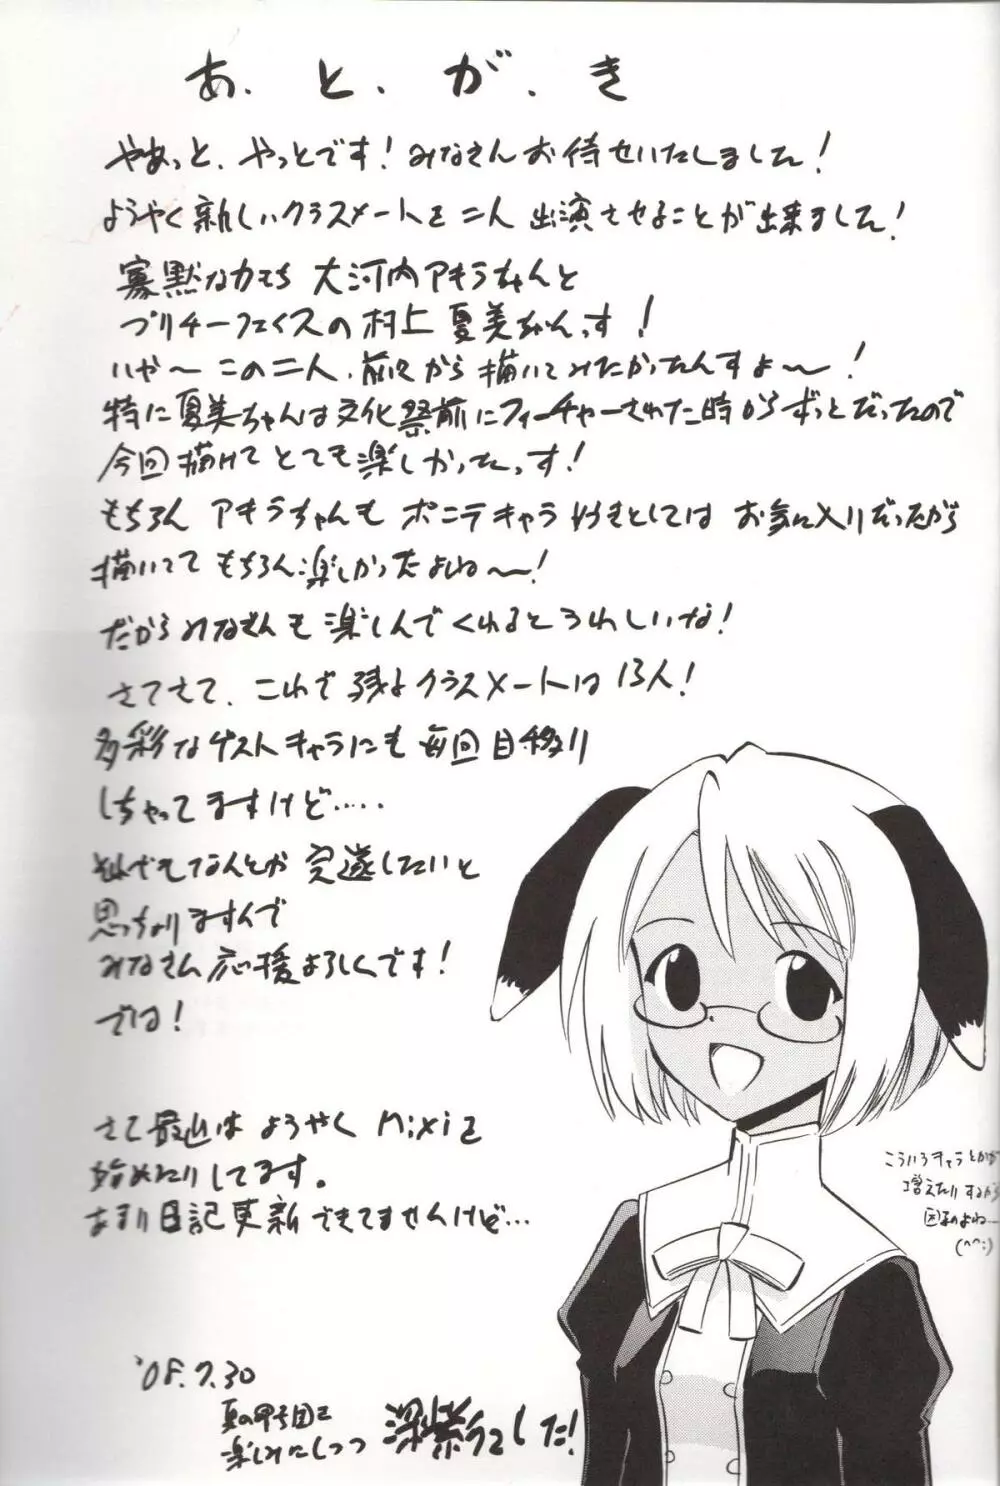 あ、と、が、き
やあっと、やっとです！みなさんお待せいたしました！
ようやく新しいクラスメートを二人 出演させることが出来ました！
寡黙な力もち 大河内アキラちゃんと
プリチーフェイスの村上夏美ちゃんっす！
いや〜この二人、前々から描いてみたかったんすよ〜！
特に夏美ちゃんは文化祭前にフィーチャーされた時からずっとだったので
今回描けてとても楽しかったっす！
もちろん アキラちゃんも ポニテキャラ好きとしては お気に入りだったから
描いてて もちろん楽しかったよね〜！
だからみなさんも楽しんでくれるとうれしいな！
さてさて、これで残るクラスメートは13人！
多彩なゲストキャラにも毎回目移り
しちゃってますけど……
それでもなんとか完遂したいと
思っちょりますんで
みなさん応援よろしくです！
では！
さて最近は ようやく mixiを
始めたりしてます。
あまり日記更新できてませんけど…
こういうキャラとかが
増えたりするから
困るのよね…
(^^;)
'08.7.30
夏の甲子園を
楽しみにしつつ 深紫でした！